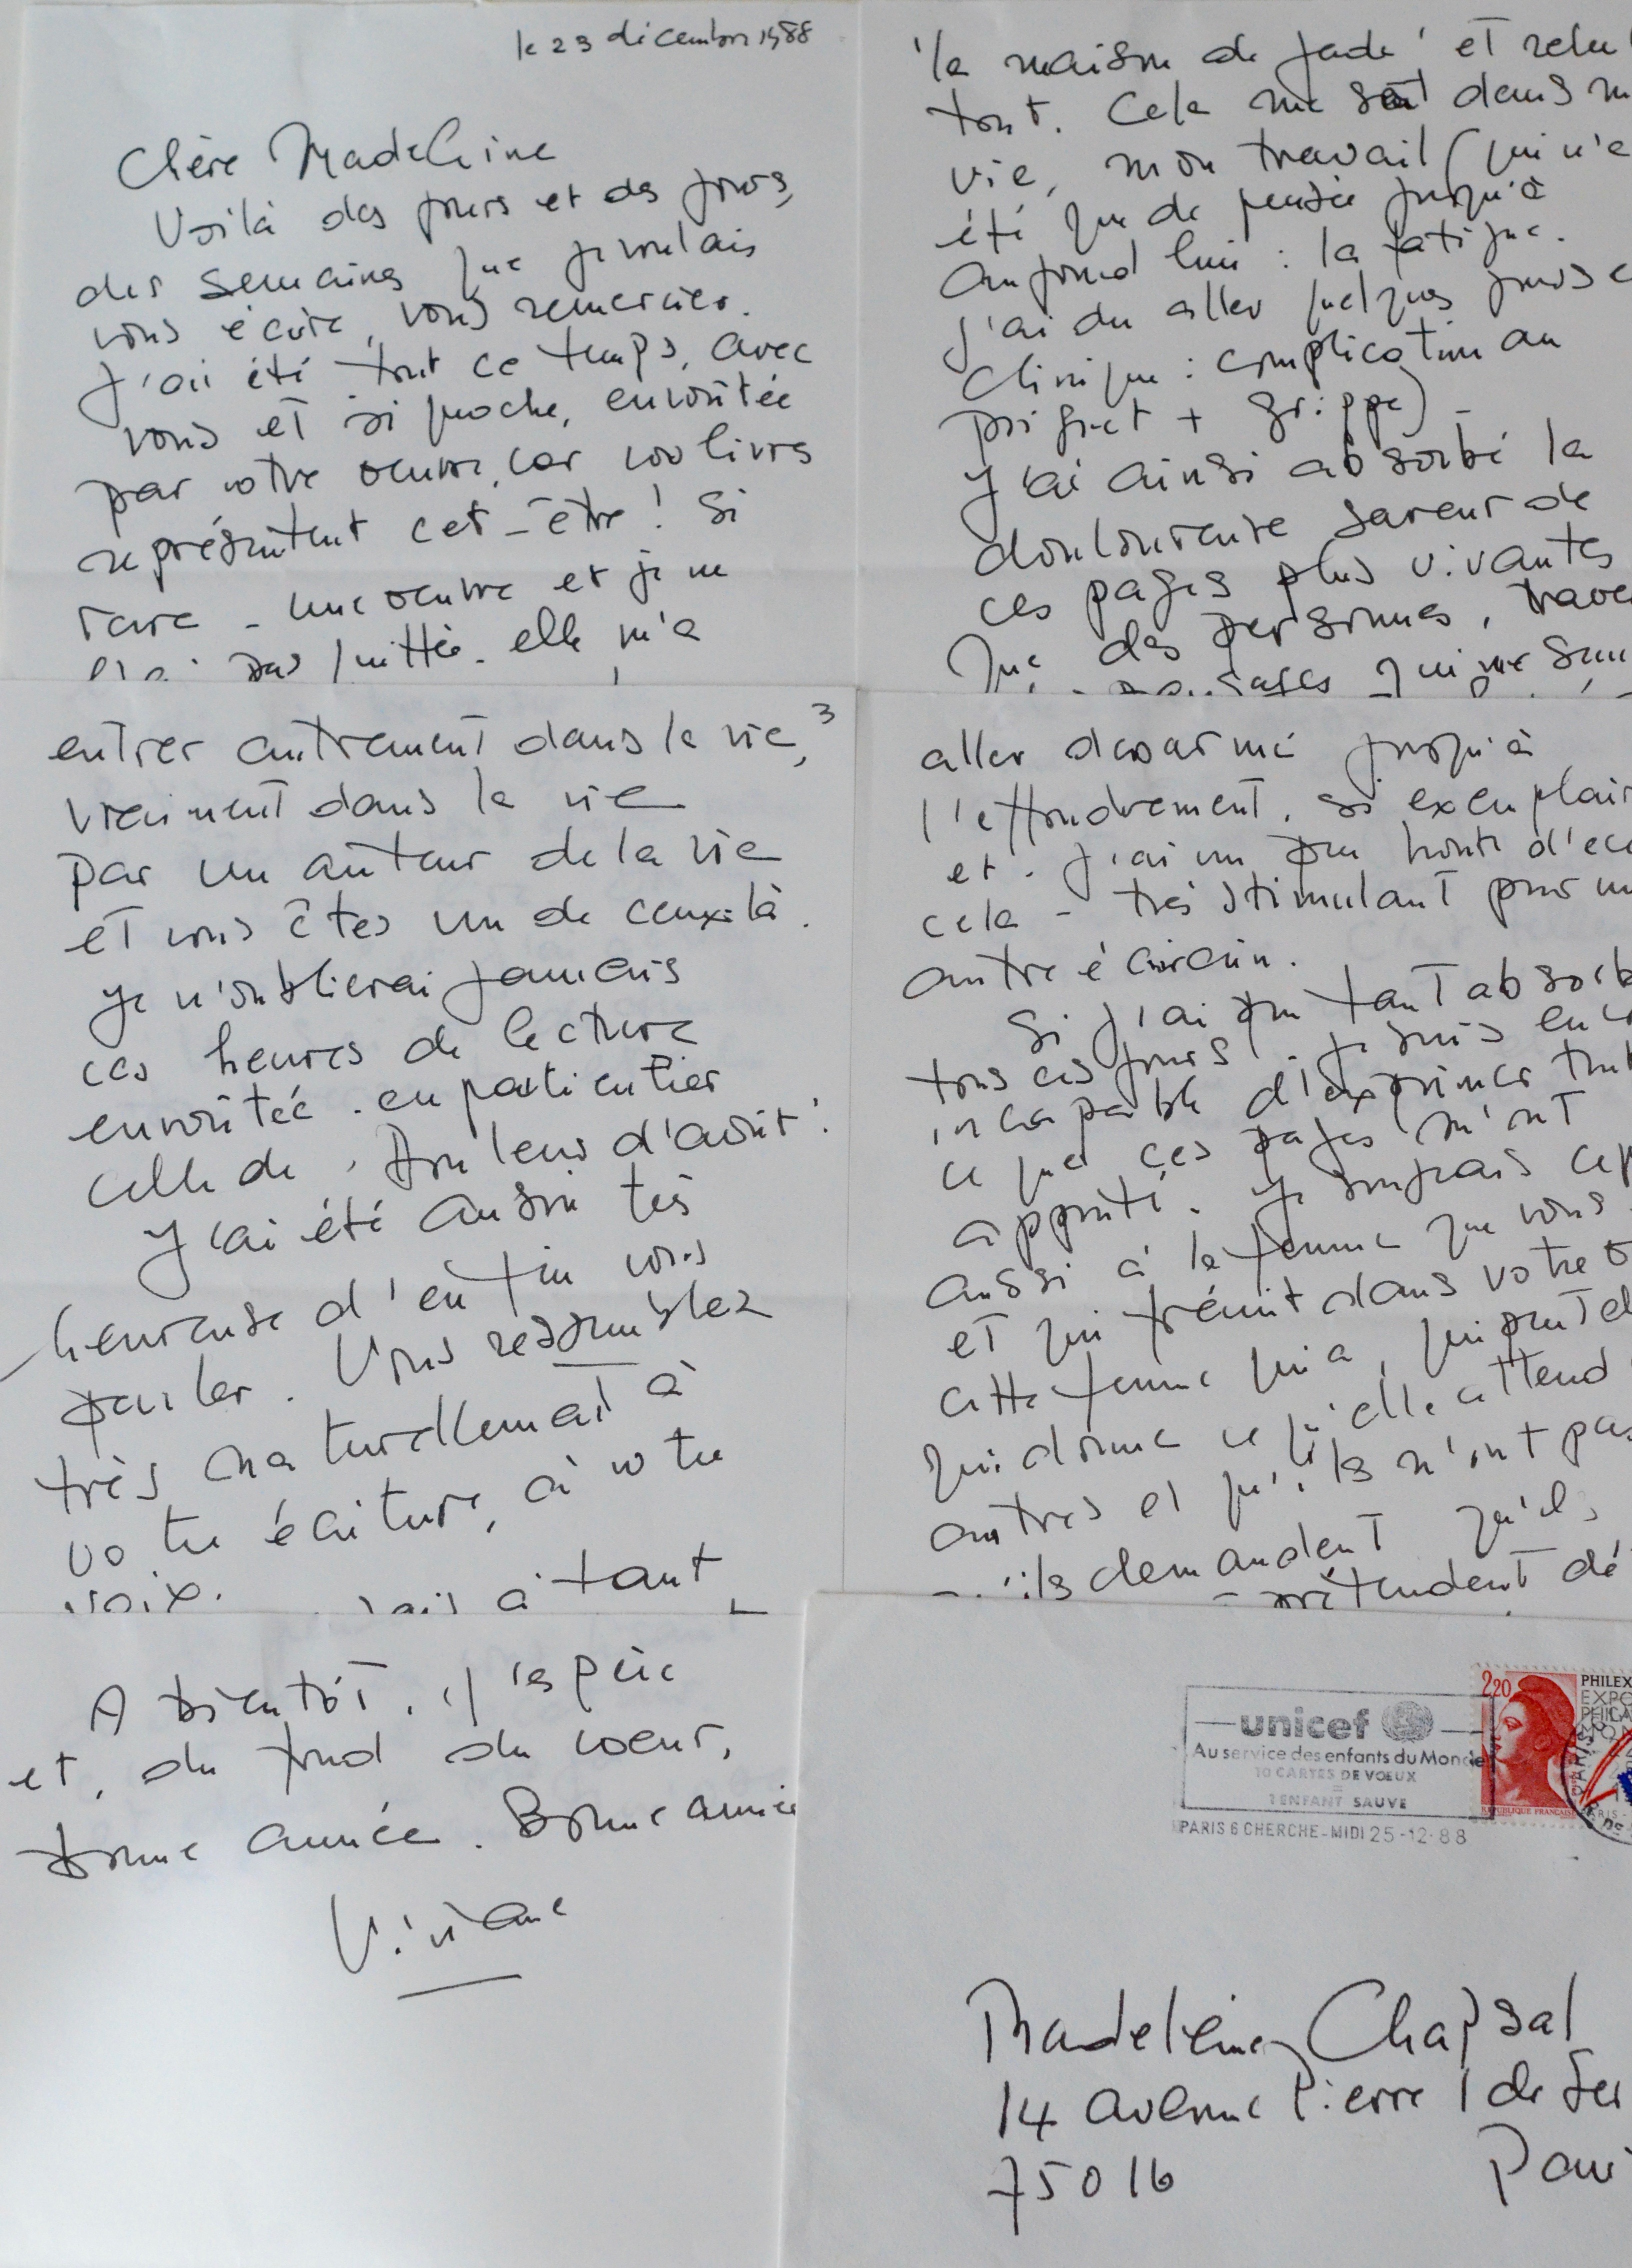 le 23 décembre 1988
Chère Madeleine
Voilà des jours et des jours,
des semaines que je voulais
vous écrire, vous remercier.
J'ai été tout ce temps, avec
vous et si proche, envoûtée
par votre oeuvre, car vos livres
représentent cet-être ! Si
rare - une oeuvre et je ne
pas quittée. elle m'a
'la maison de jade' et relu
tout. Cela me suit dans m
vie, mon travail (qui n'a
été que de pensée jusqu'à
aujourd'hui : la fatigue.
J'ai du aller quelques jours e
clinique : complication au
poignet + grippe) -
J'ai ainsi absorbé la
douloureuse saveur de
ces pages plus vivantes
que des personnes,
qui me
entrer autrement dans la vie, 3
vraiment dans la vie
par un auteur de la vie
et vous êtes un de ceux-là.
Je n'oublierai jamais
ces heures de lecture
envoûtée. en particulier
celle de 'Douleur d'août'.
J'ai été aussi très
heureuse d'enfin vous
parler. Vous ressemblez
très naturellement à
votre écriture, à votre
voix.
à tant
aller désarmé jusqu'à
l'effondrement, si exemplair
et. J'ai un peu honte d'éc
cela - très stimulant pour un
autre écrivain.
Si j'ai pu tant absorb
tous ces jours - je suis enco
incapable d'exprimer tout
ce que ces pages m'ont
apporté. Je songeais cep
aussi à la femme que vous
et qui frémit dans votre
cette femme qui a, qui
qui donne ce qu'elle attend
autres et qu'ils n'ont pas
qu'ils demandent qu'ils
prétendent dé
A bientôt, j'espère
et, du fond du coeur,
bonne année. Bonne année
Viviane
unicef
Au service des enfants du Monde
10 CARTES DE VOEUX
=
1 ENFANT SAUVE
PARIS 6 CHERCHE-MIDI 25-12-88
2,20
REPUBLIQUE FRANCAISE
PHILEX
EXPO
PHILA
MON
Madeleine Chapsal
14 avenue Pierre 1 de Ser
75016 Pari